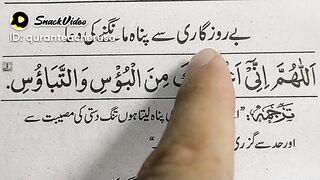 SnackVideo
ID: quranteacherusa
بے روزگاری سے پناہ مانگنے کی دعا
اَللّٰهُمَّ اِنِّیْۤ مِنَ الْبُؤْسِ وَالتَّبَاؤُسِ.
ترجمہ: پناہ لیتا ہوں تنگ دستی کی مصیبت سے
اور حد سے گزری